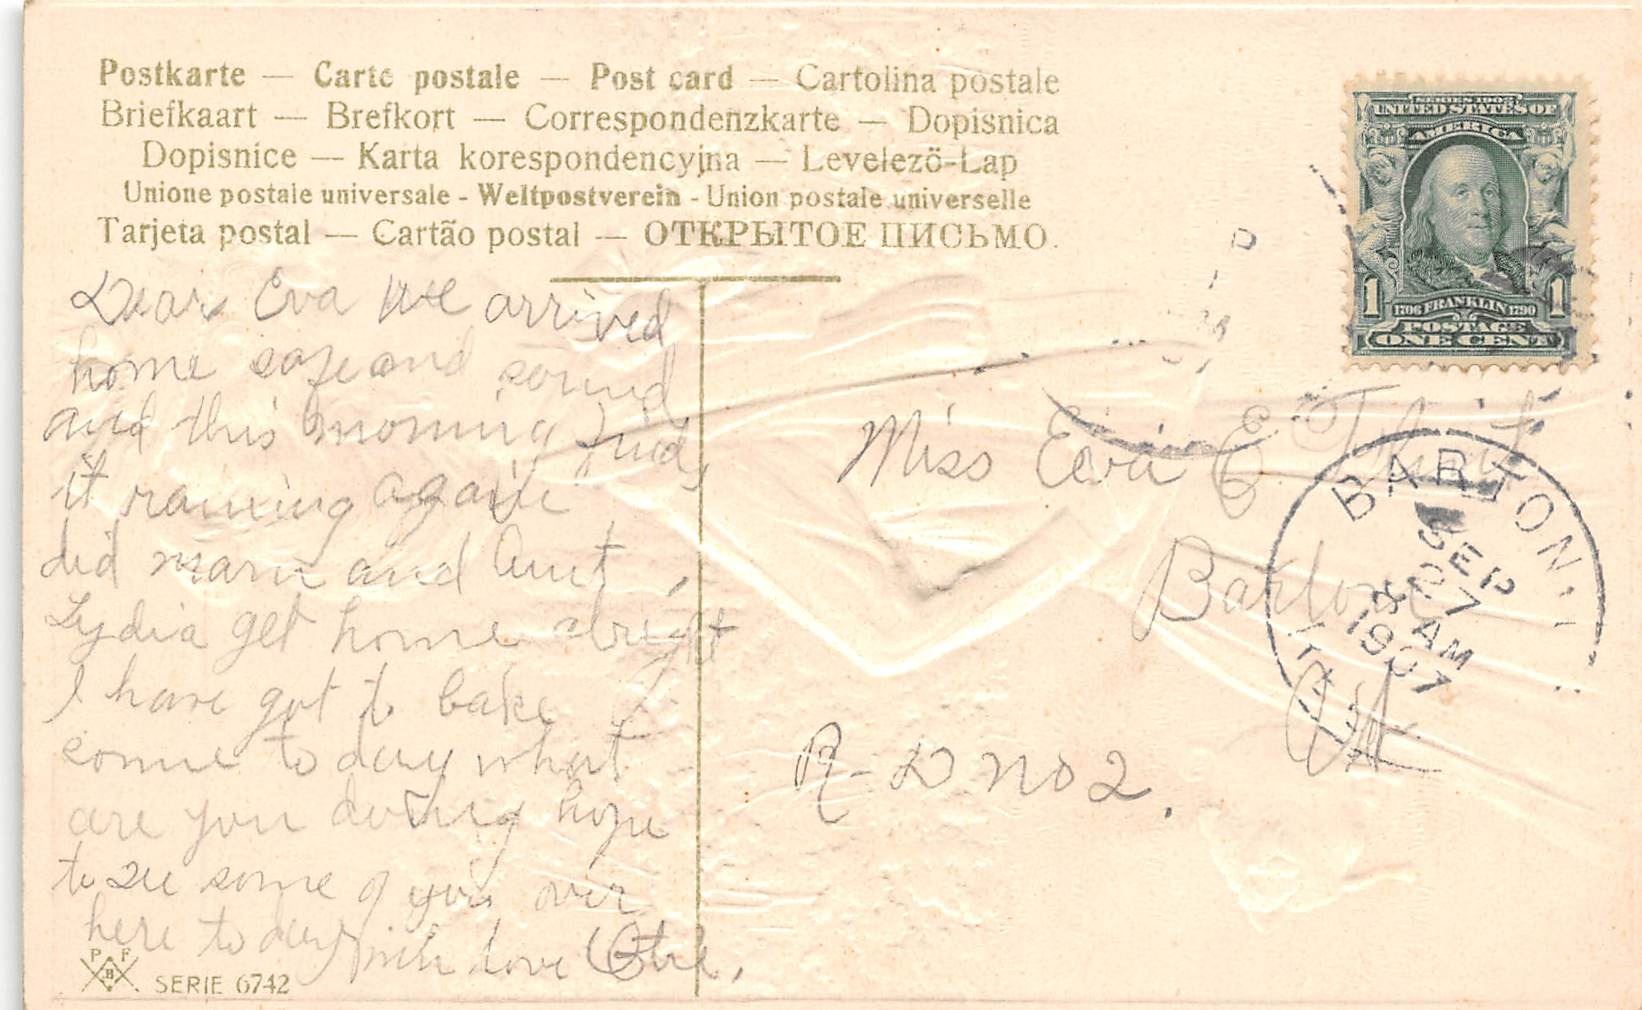 Postkarte — Carte postale — Post card — Cartolina postale
Briefkaart — Brefkort — Correspondenzkarte — Dopisnica
Dopisnice — Karta korespondencyjna — Levelező-Lap
Unione postale universale - Weltpostverein - Union postale universelle
Tarjeta postal — Cartão postal — ОТКРЫТОЕ ПИСЬМО.
SERIES 1902
UNITED STATES OF
AMERICA
1 1706 FRANKLIN 1790 1
POSTAGE
ONE CENT
Dear Eva We arrived
home safe and sound
and this morning find
it raining again
did mam and Aunt
Lydia get home alright
I have got to bake
some to day what
are you doing hope
to see some of you over
here to day with love
Miss Eva E
Barton
Vt
R-D no 2.
BARTON
SEP
7
8 AM
1907
P F
B
SERIE 6742